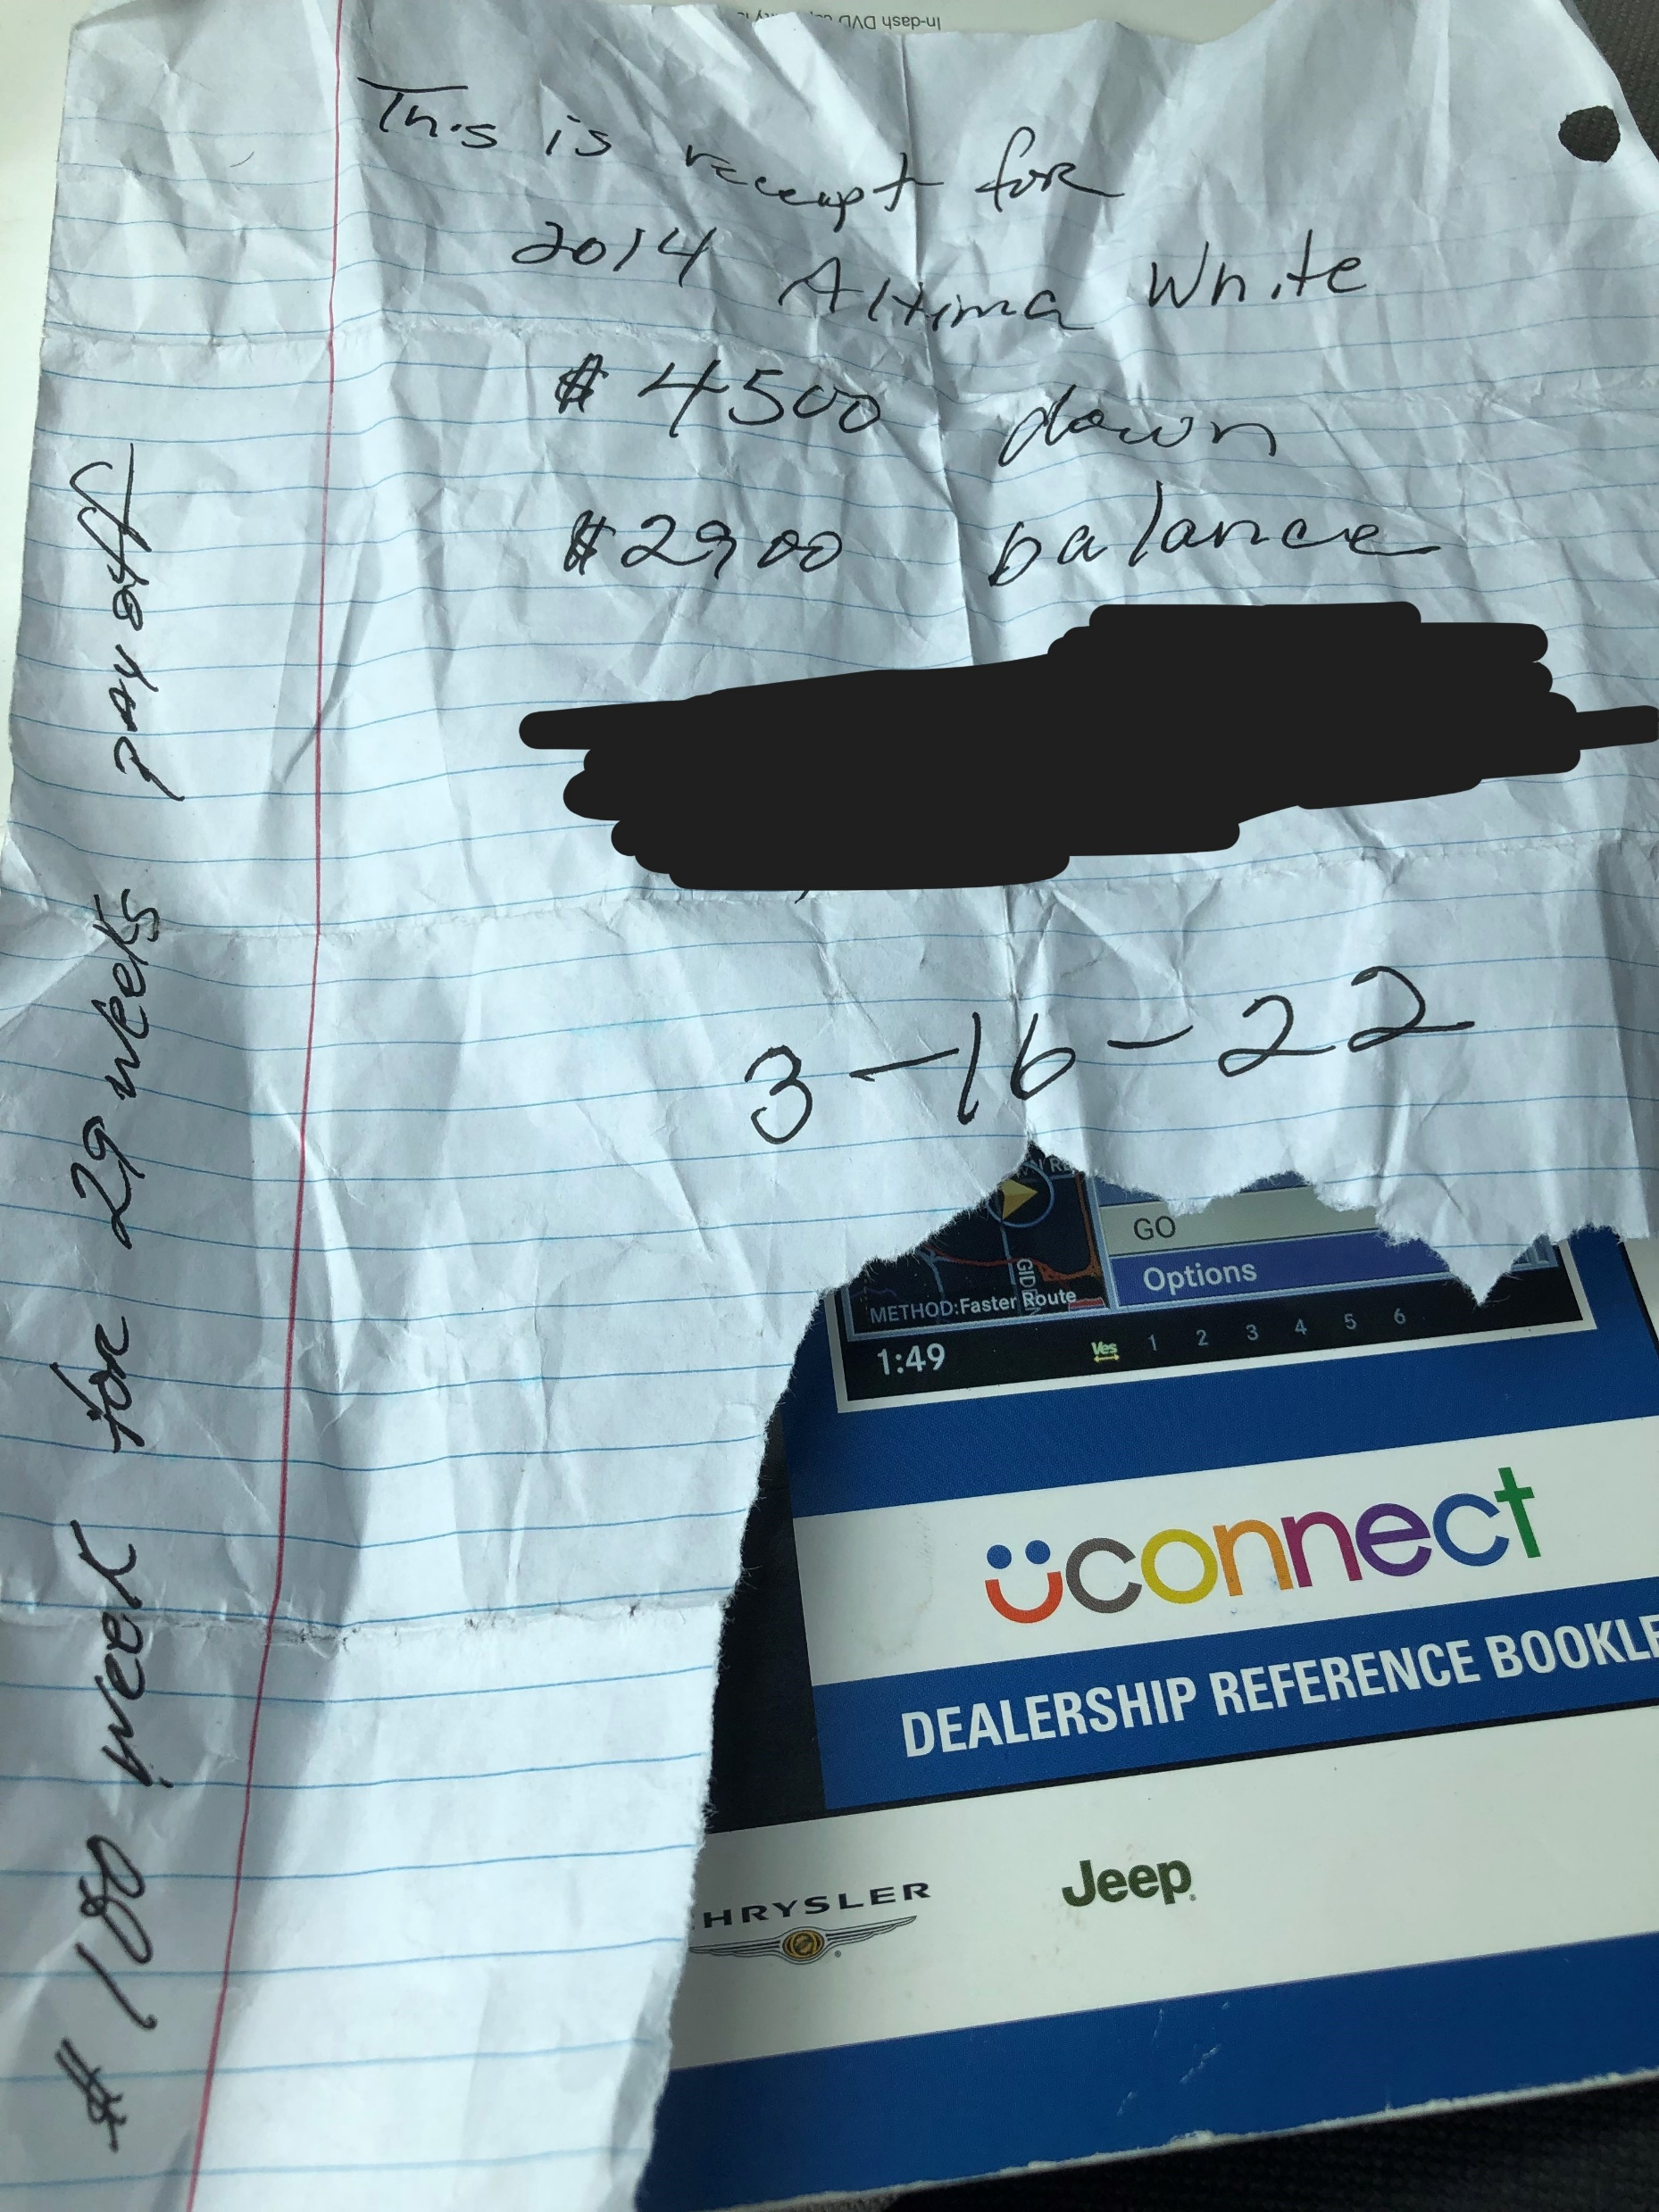 In-dash DVD
This is receipt for
2014 Altima White
$ 4500 down
$2900 balance
3-16-22
$ 100 week for 29 weeks pay off
GO
Options
METHOD:Faster Route
1:49
Ves 1 2 3 4 5 6
uconnect
DEALERSHIP REFERENCE BOOKLE
HRYSLER
Jeep